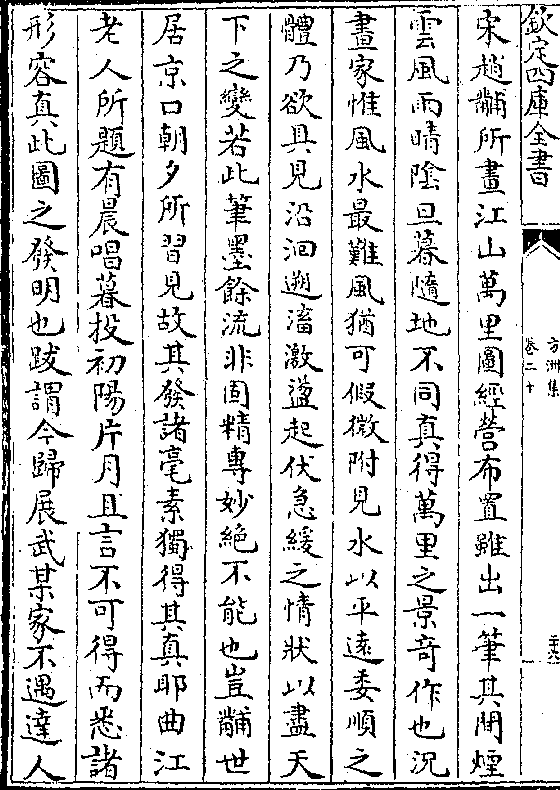 欽定四庫全書
方洲集
卷二十
宋趙黼所畫江山萬里圖經營布置雖出一筆其間煙
雲風雨晴陰旦暮隨地不同真得萬里之景竒作也況
畫家惟風水最難風猶可假微附見水以平逺委順之
體乃欲具見沿洄遡潏激盪起伏急緩之情狀以盡天
下之變若此筆墨餘流非固精専妙絶不能也豈黼世
居京口朝夕所習見故其發諸毫素獨得其真耶曲江
老人所題有晨唱暮投初陽片月且言不可得而悉諸
形容真此圖之發明也跋謂今歸展武某家不遇達人